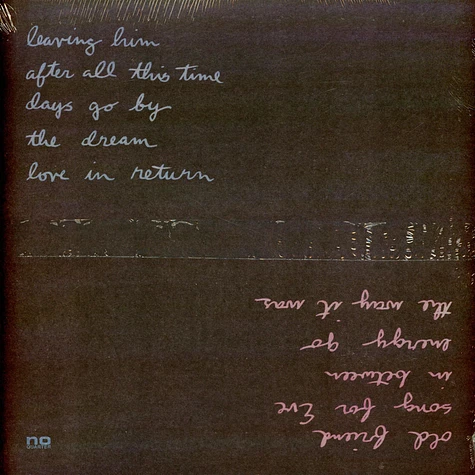 leaving him
after all this time
days go by
the dream
love in return
old friend
song for Eve
in between
energy go
the way it was
no
QUARTER